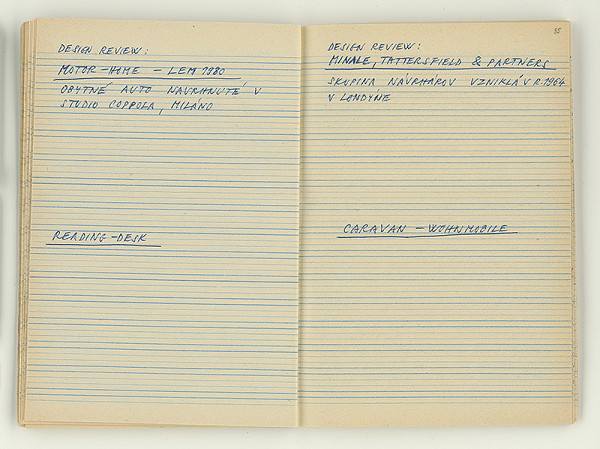 DESIGN REVIEW:
MOTOR-HOME - LEM 1980
OBYTNÉ AUTO NAVRHNUTÉ V
STUDIO COPPOLA, MILÁNO
READING-DESK
35
DESIGN REVIEW:
MINALE, TATTERSFIELD & PARTNERS
SKUPINA NÁVRHÁROV VZNIKLÁ V R. 1964
V LONDÝNE
CARAVAN - WOHNMOBILE